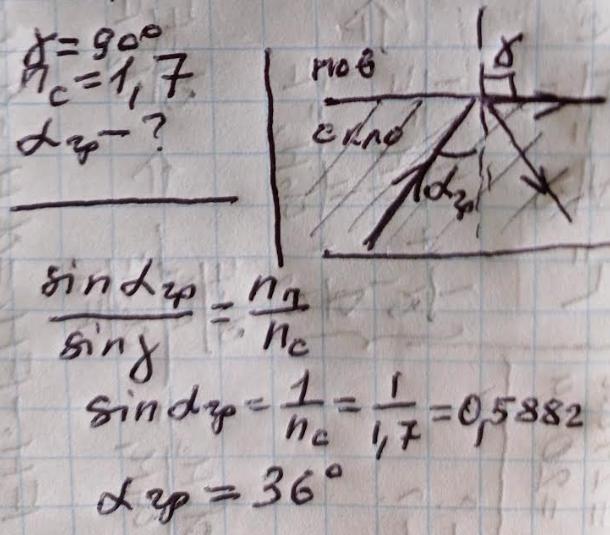 γ = 90°
n_c = 1,7
α_гр - ?
пов
скло
γ
α_гр
sin α_гр / sin γ = n_п / n_c
sin α_гр = 1 / n_c = 1 / 1,7 = 0,5882
α_гр = 36°